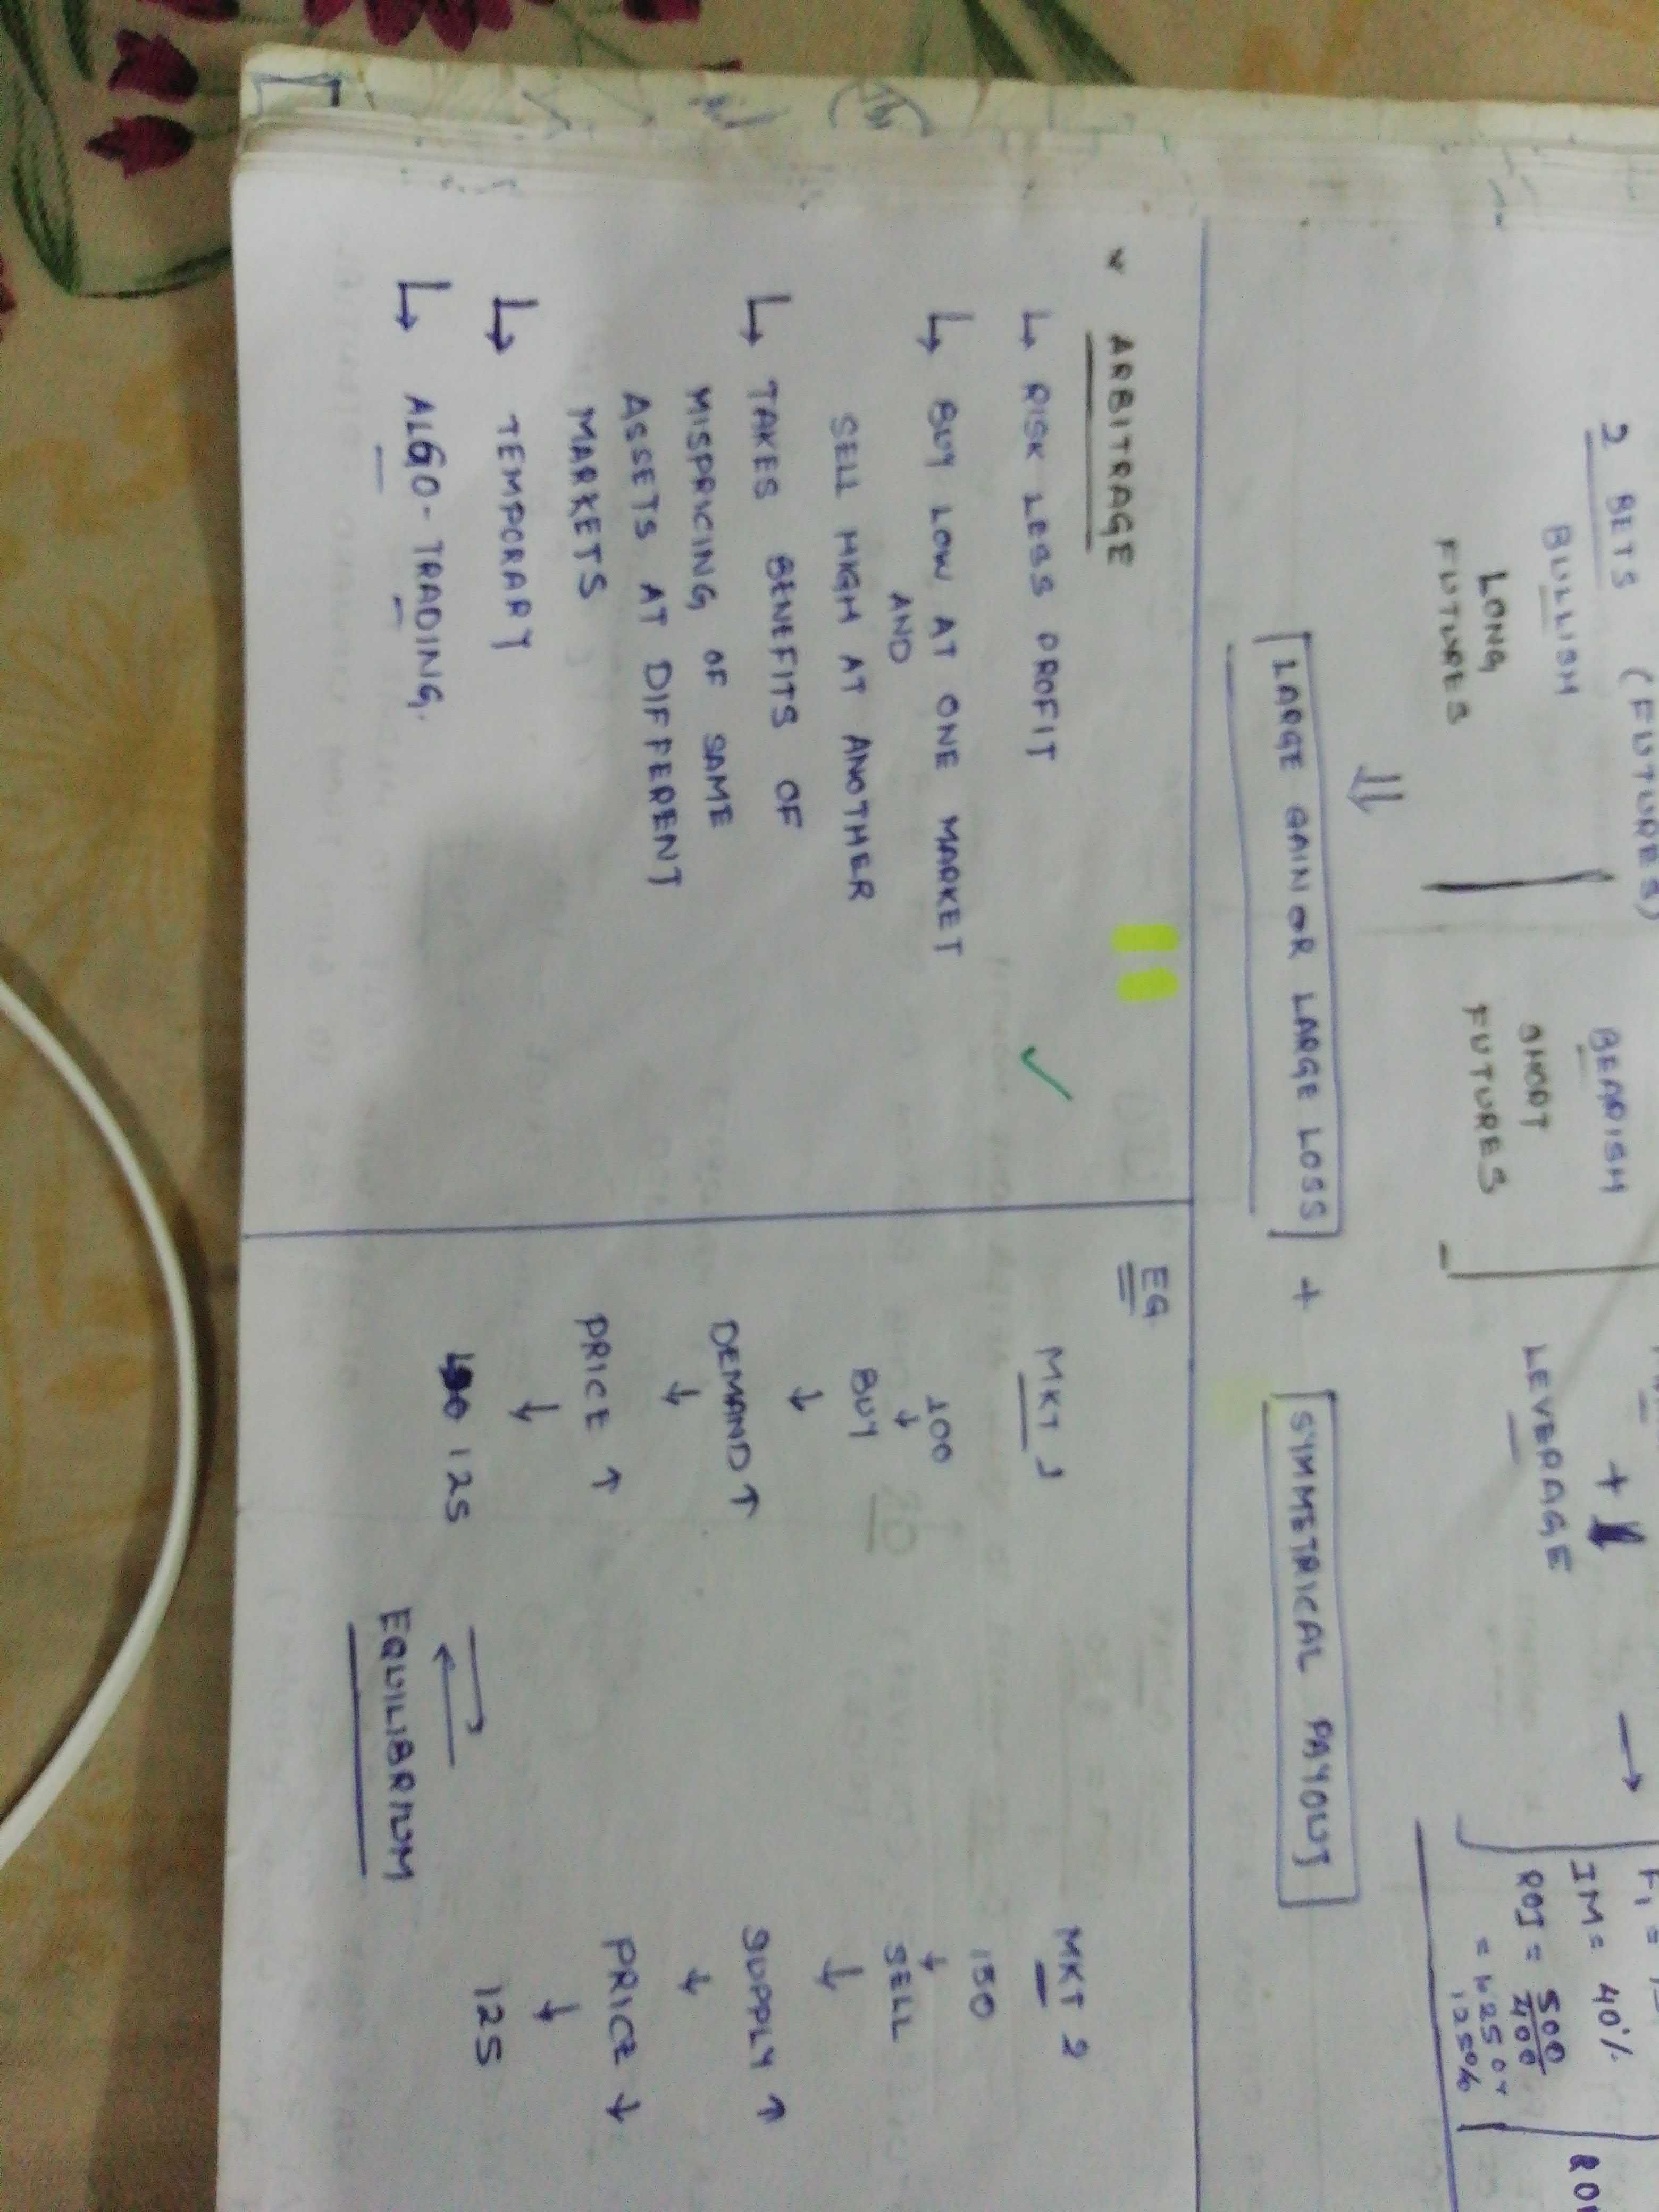 2 BETS (FUTURES)
BULLISH
LONG
FUTURES
BEARISH
SHORT
FUTURES
+
LEVERAGE
→
IM = 40%
ROI = 500/400
125%
⇓
LARGE GAIN OR LARGE LOSS + SYMMETRICAL PAYOUT
ARBITRAGE
↳ RISK LESS PROFIT
↳ BUY LOW AT ONE MARKET
AND
SELL HIGH AT ANOTHER
↳ TAKES BENEFITS OF
MISPRICING OF SAME
ASSETS AT DIFFERENT
MARKETS
↳ TEMPORARY
↳ ALGO-TRADING.
EG.
MKT 1
100
↓
BUY
↓
DEMAND ↑
↓
PRICE ↑
↓
125
MKT 2
150
↓
SELL
↓
SUPPLY ↑
↓
PRICE ↓
↓
125
EQUILIBRIUM